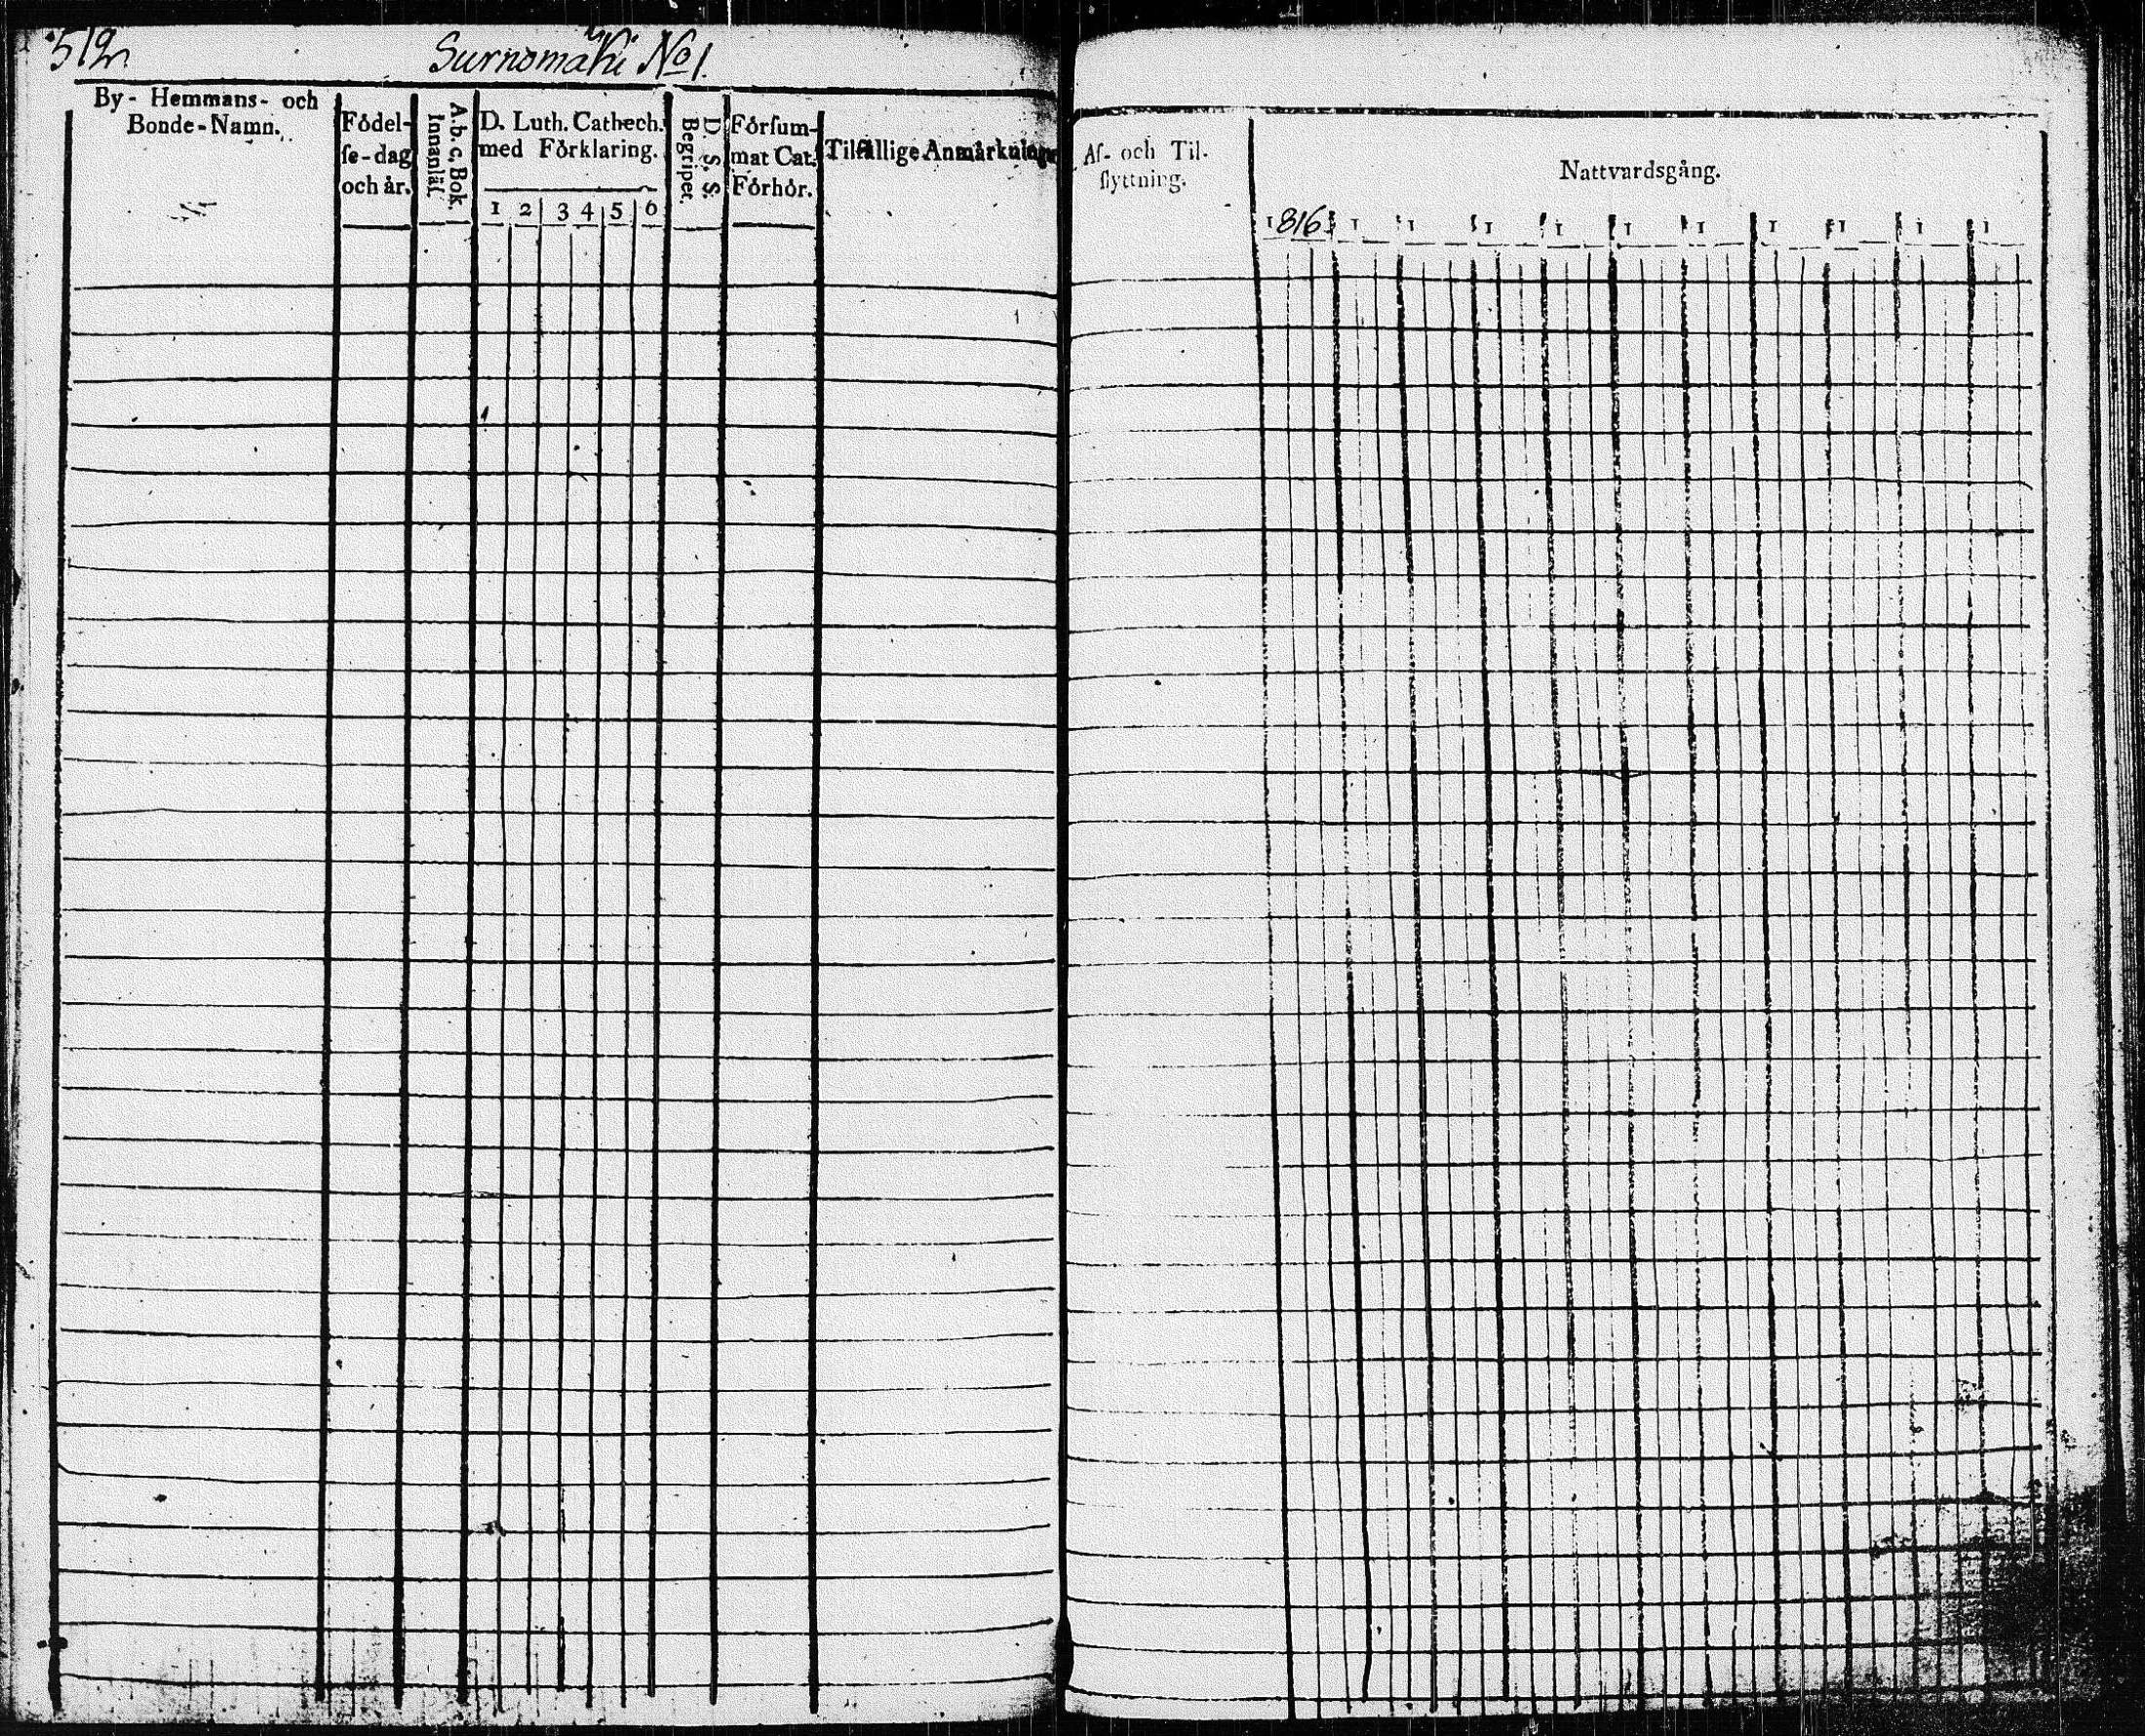 512
Surnomäki No 1.
By- Hemmans- och
Bonde-Namn.
Födel-
ſe-dag
och år.
A. b. c. Bok.
Innanläſ.
D. Luth. Cathech.
med Förklaring.
1 2 3 4 5 6
D. S. S.
Begriper.
Förſum-
mat Cat.
Förhör.
Tilfällige Anmärkningar
Af- och Til-
flyttning.
Nattvardsgång.
1816 1 1 1 1 1 1 1 1 1 1